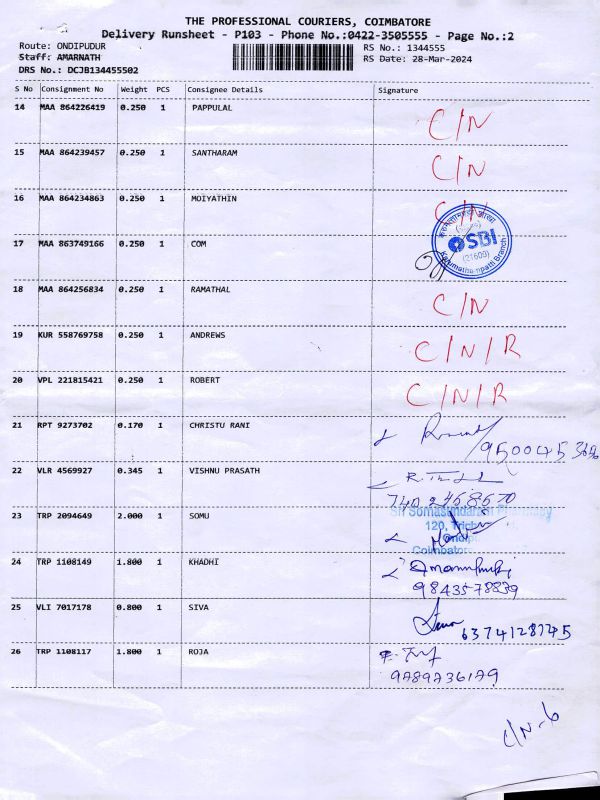 THE PROFESSIONAL COURIERS, COIMBATORE
Delivery Runsheet - P103 - Phone No.:0422-3505555 - Page No.:2
Route: ONDIPUDUR RS No.: 1344555
Staff: AMARNATH RS Date: 28-Mar-2024
DRS No.: DCJB134455502
S No Consignment No Weight PCS Consignee Details Signature
14 MAA 864226419 0.250 1 PAPPULAL C/N
15 MAA 864239457 0.250 1 SANTHARAM C/N
16 MAA 864234863 0.250 1 MOIYATHIN C/N
SBI
(21609)
17 MAA 863749166 0.250 1 COM
Branch
18 MAA 864256834 0.250 1 RAMATHAL C/N
19 KUR 558769758 0.250 1 ANDREWS C/N/R
20 VPL 221815421 0.250 1 ROBERT C/N/R
21 RPT 9273702 0.170 1 CHRISTU RANI
22 VLR 4569927 0.345 1 VISHNU PRASATH
23 TRP 2094649 2.000 1 SOMU
120,
Coimbatore
24 TRP 1108149 1.800 1 KHADHI
9843578839
25 VLI 7017178 0.800 1 SIVA
6374128745
26 TRP 1108117 1.800 1 ROJA
9789736179
C/N-6